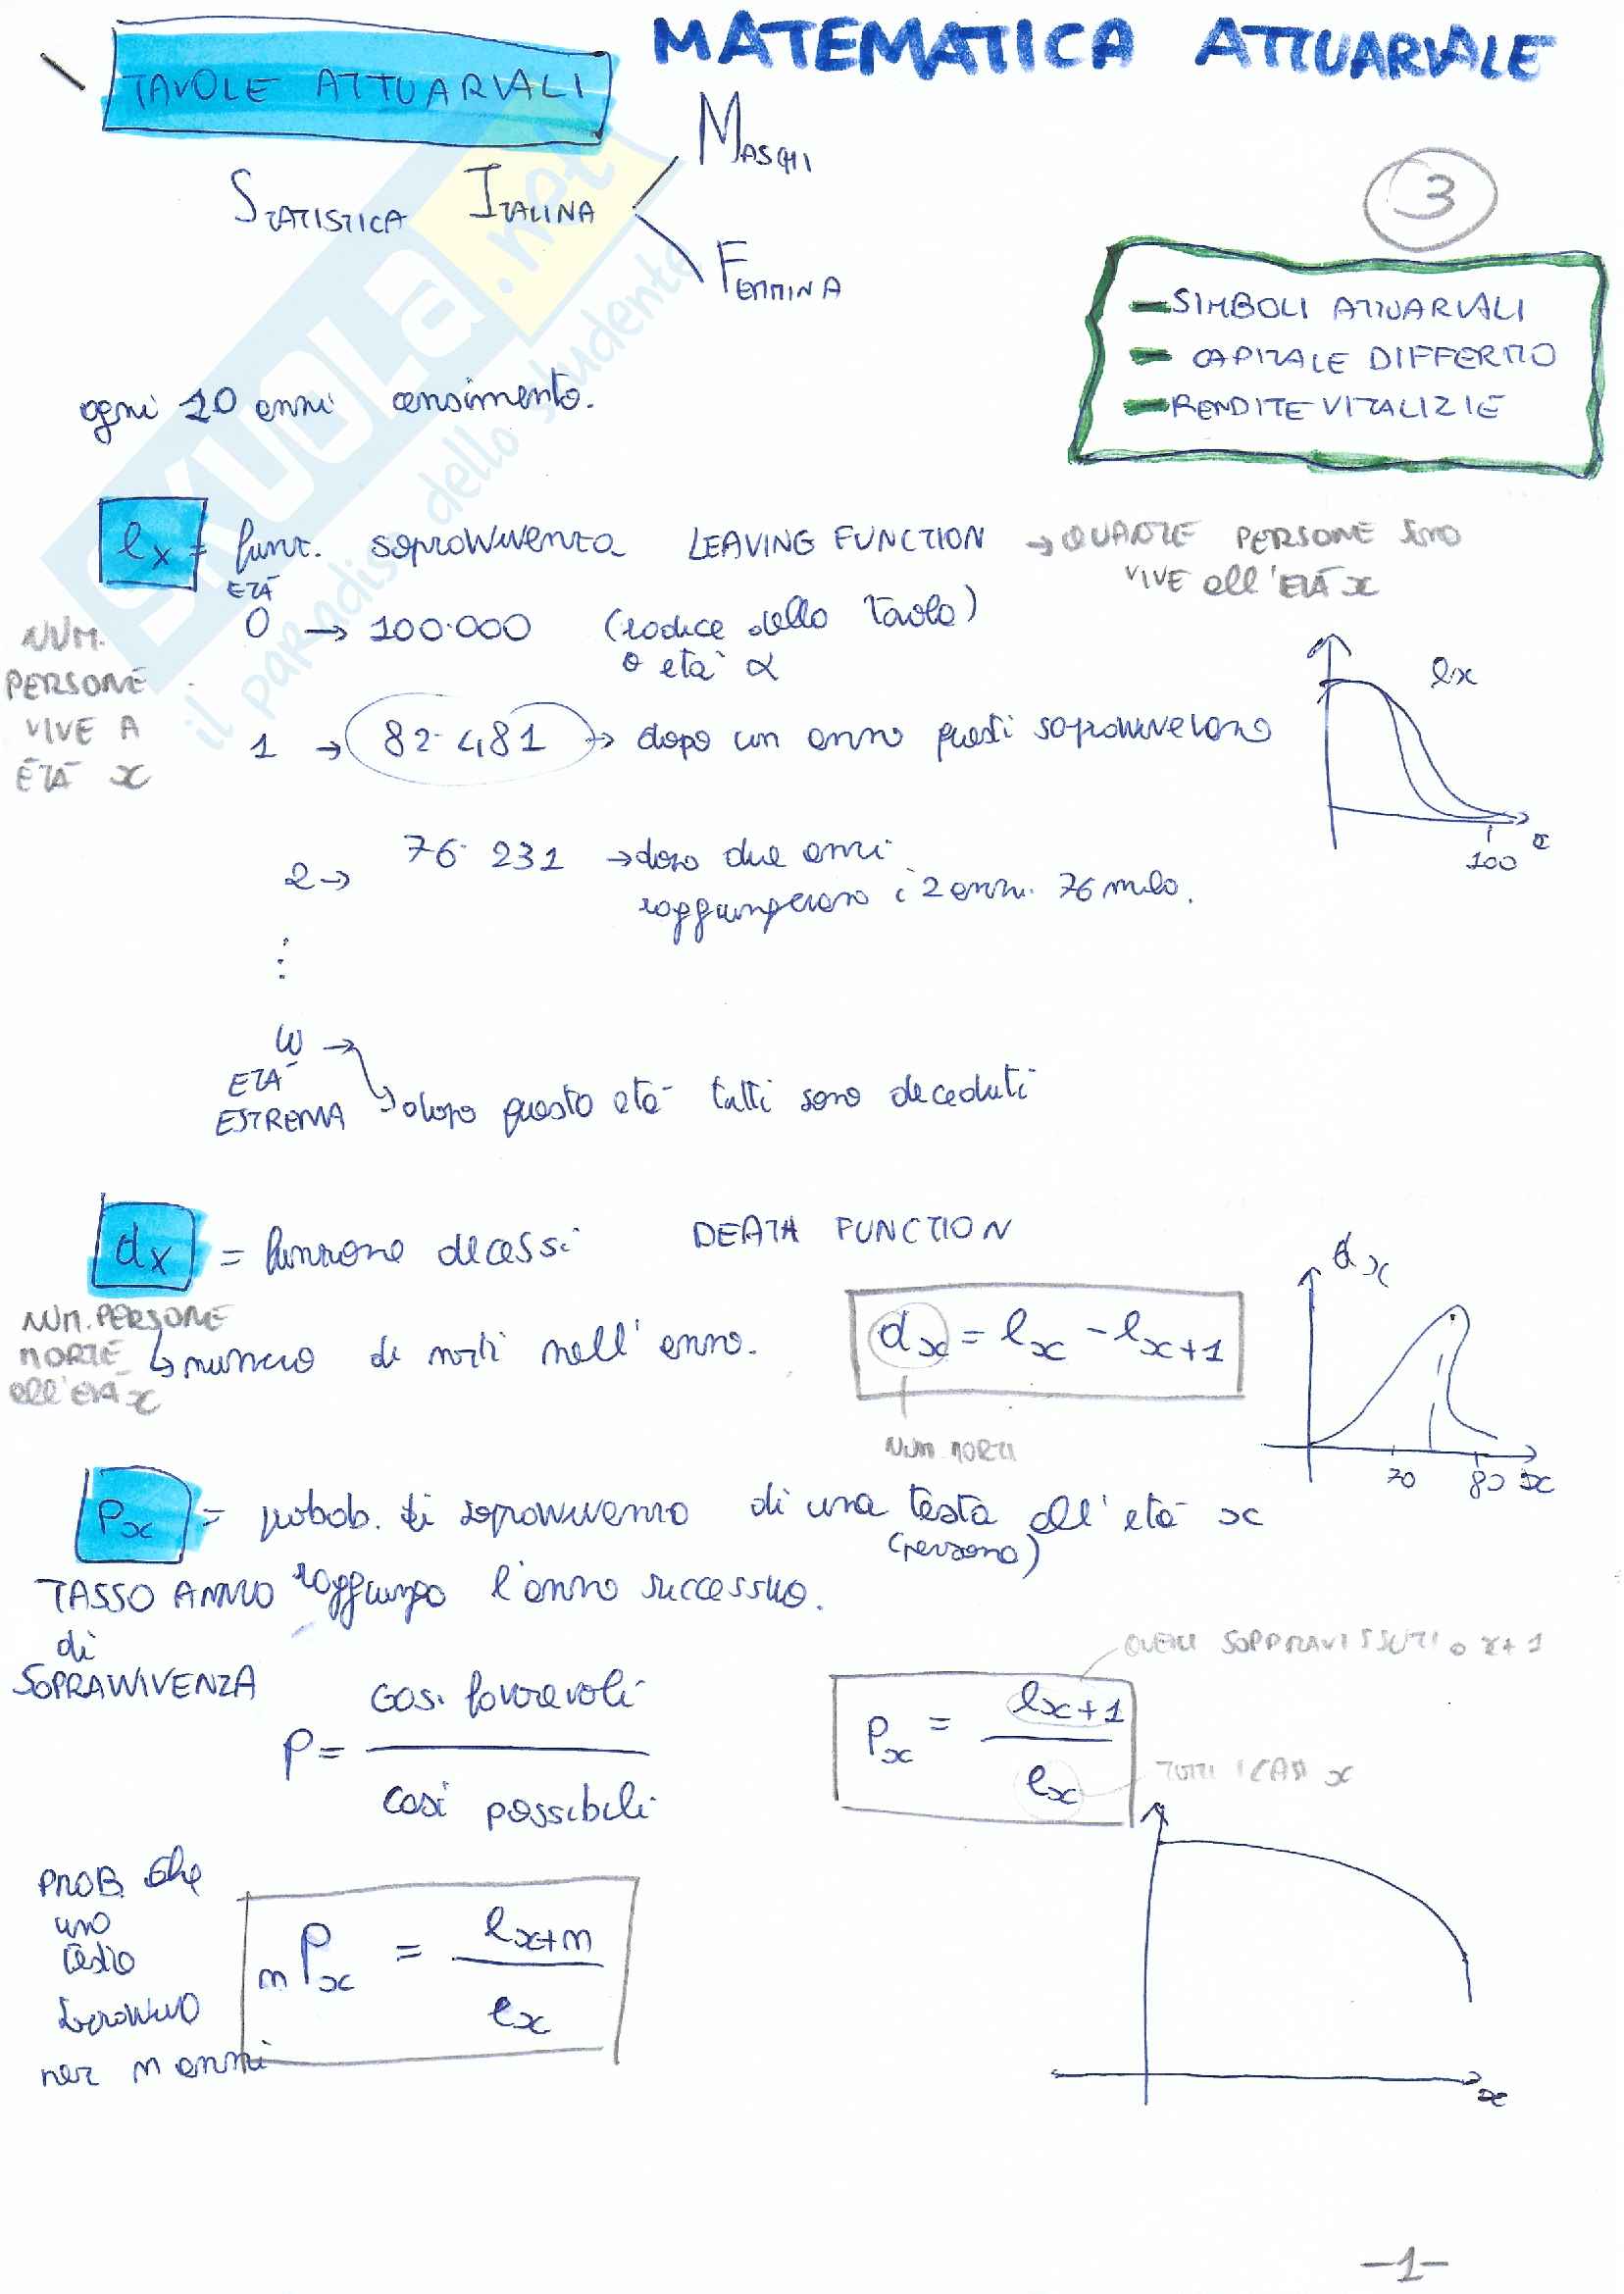 MATEMATICA ATTUARIALE
TAVOLE ATTUARIALI
MASCHI
STATISTICA ITALINA
FEMMINA
3
SIMBOLI ATTUARIALI
CAPITALE DIFFERITO
RENDITE VITALIZIE
ogni 10 anni censimento.
lx = funz. sopravvivenza LEAVING FUNCTION → QUANTE PERSONE SONO
VIVE all'ETÀ x
ETÀ
0 → 100.000 (radice della tavola)
o età α
NUM.
PERSONE
VIVE A
ETÀ x
1 → 82.481 → dopo un anno questi sopravvivevano
lx
100
2 → 76.231 → dopo due anni
raggiungevano i 2 anni 76 mila.
⋮
ω →
ETÀ
ESTREMA
dopo questa età tutti sono deceduti
dx = funzione decessi DEATH FUNCTION
NUM. PERSONE
MORTE
all'ETÀ x
↳ numero di morti nell'anno.
dx = lx - lx+1
NUM MORTI
dx
70 80 x
Px = probab. di sopravvivenza di una testa all'età x
(persona)
TASSO ANNUO raggiunga l'anno successivo.
di
SOPRAVVIVENZA
P = casi favorevoli
casi possibili
QUELLI SOPPRAVISSUTI a x+1
Px = lx+1
lx
TUTTI I CASI x
PROB. che
una
testa
sopravviva
per n anni
nPx = lx+n
lx
x
-1-
SKUOLA.net
il paradiso dello studente